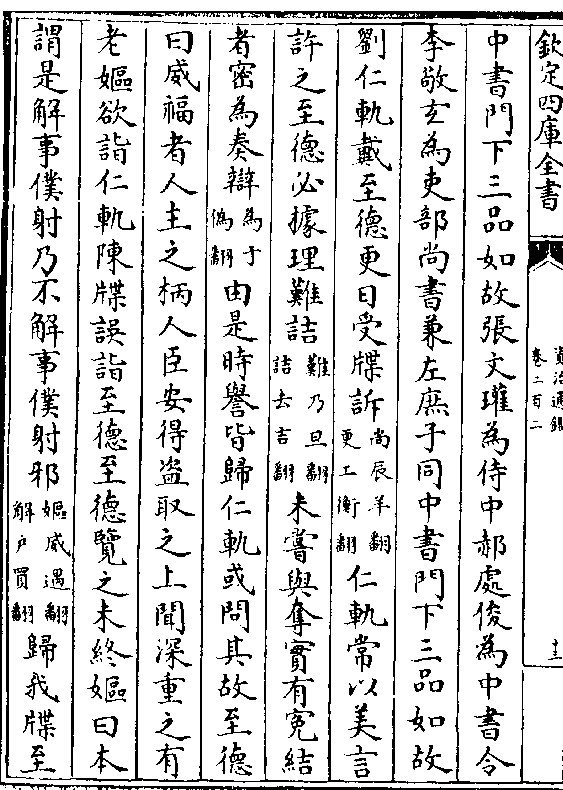 欽定四庫全書
資治通鑑
卷二百二
十三
中書門下三品如故張文瓘為侍中郝處俊為中書令
李敬玄為吏部尚書兼左庶子同中書門下三品如故
劉仁軌戴至德更日受牒訴尚辰羊翻更工衡翻仁軌常以美言
許之至德必據理難詰難乃旦翻詰去吉翻未嘗與奪實有寃結
者密為奏辯為于偽翻由是時譽皆歸仁軌或問其故至德
曰威福者人主之柄人臣安得盗取之上聞深重之有
老嫗欲詣仁軌陳牒誤詣至德至德覽之未終嫗曰本
謂是解事僕射乃不解事僕射邪嫗威遇翻解户買翻歸我牒至